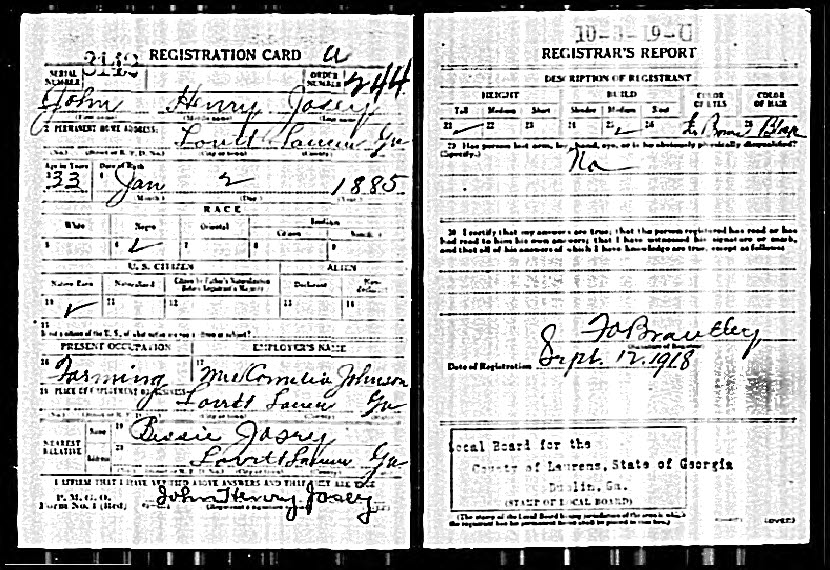 REGISTRATION CARD
SERIAL NUMBER 3142
ORDER NUMBER 244
John Henry Josey
(First name) (Middle name) (Last name)
2 PERMANENT HOME ADDRESS:
Lovett Laurens Ga
(No.) (Street or R. F. D. No.) (City or town) (County)
Age in Years Date of Birth
33 Jan 2 1885
(Month) (Day) (Year)
RACE
White Negro Oriental Indian
Citizen
5 6 ✓ 7 8 9
U. S. CITIZEN ALIEN
Native Born Naturalized Citizen by Father's Naturalization Before Registrant's Majority Declarant Non-declarant
10 ✓ 11 12 13 14
15
If not a citizen of the U. S., of what nation are you a citizen or subject?
PRESENT OCCUPATION EMPLOYER'S NAME
16 Farming 17 Mrs Cornelia Johnson
18 PLACE OF EMPLOYMENT OR BUSINESS:
Lovett Laurens Ga
(No.) (Street or R. F. D. No.) (City or town) (County)
NEAREST RELATIVE
Name 19 Bessie Josey
Address 20 Lovett Laurens Ga
I AFFIRM THAT I HAVE VERIFIED ABOVE ANSWERS AND THAT THEY ARE TRUE
P. M. G. O.
Form No. 1 (Red) John Henry Josey
REGISTRAR'S REPORT
DESCRIPTION OF REGISTRANT
HEIGHT BUILD COLOR OF EYES COLOR OF HAIR
Tall Medium Short Slender Medium Stout
21 ✓ 22 23 24 25 ✓ 26 Brown
29 Has person lost arm, leg, hand, eye, or is he obviously physically disqualified?
(Specify.) No
30 I certify that my answers are true; that the person registered has read or has
had read to him his own answers; that I have witnessed his signature or mark,
and that all of his answers of which I have knowledge are true, except as follows:
Brantley
Date of Registration Sept. 12. 1918
Local Board for the
County of Laurens, State of Georgia
Dublin, Ga.
(STAMP OF LOCAL BOARD)
(The stamp of the Local Board having jurisdiction of the area in which
the registrant has his permanent home shall be placed in this box.)
(OVER)